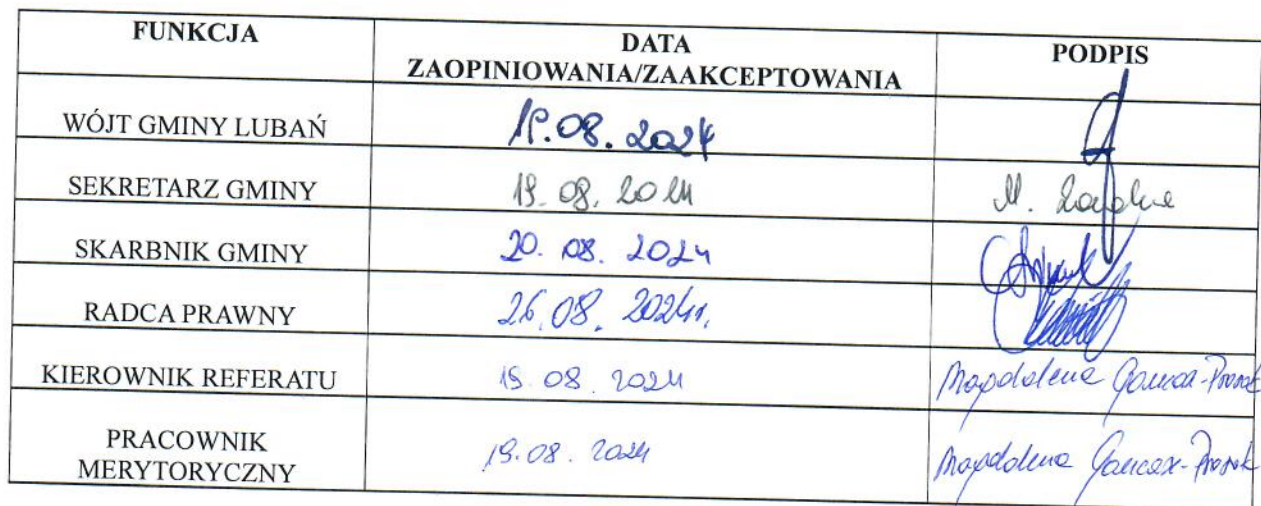 FUNKCJA DATA PODPIS
ZAOPINIOWANIA/ZAAKCEPTOWANIA
WÓJT GMINY LUBAŃ 19.08.2024
SEKRETARZ GMINY 19.08.2024 M.
SKARBNIK GMINY 20.08.2024
RADCA PRAWNY 26.08.2024r.
KIEROWNIK REFERATU 19.08.2024 Magdalena
PRACOWNIK
MERYTORYCZNY 19.08.2024 Magdalena